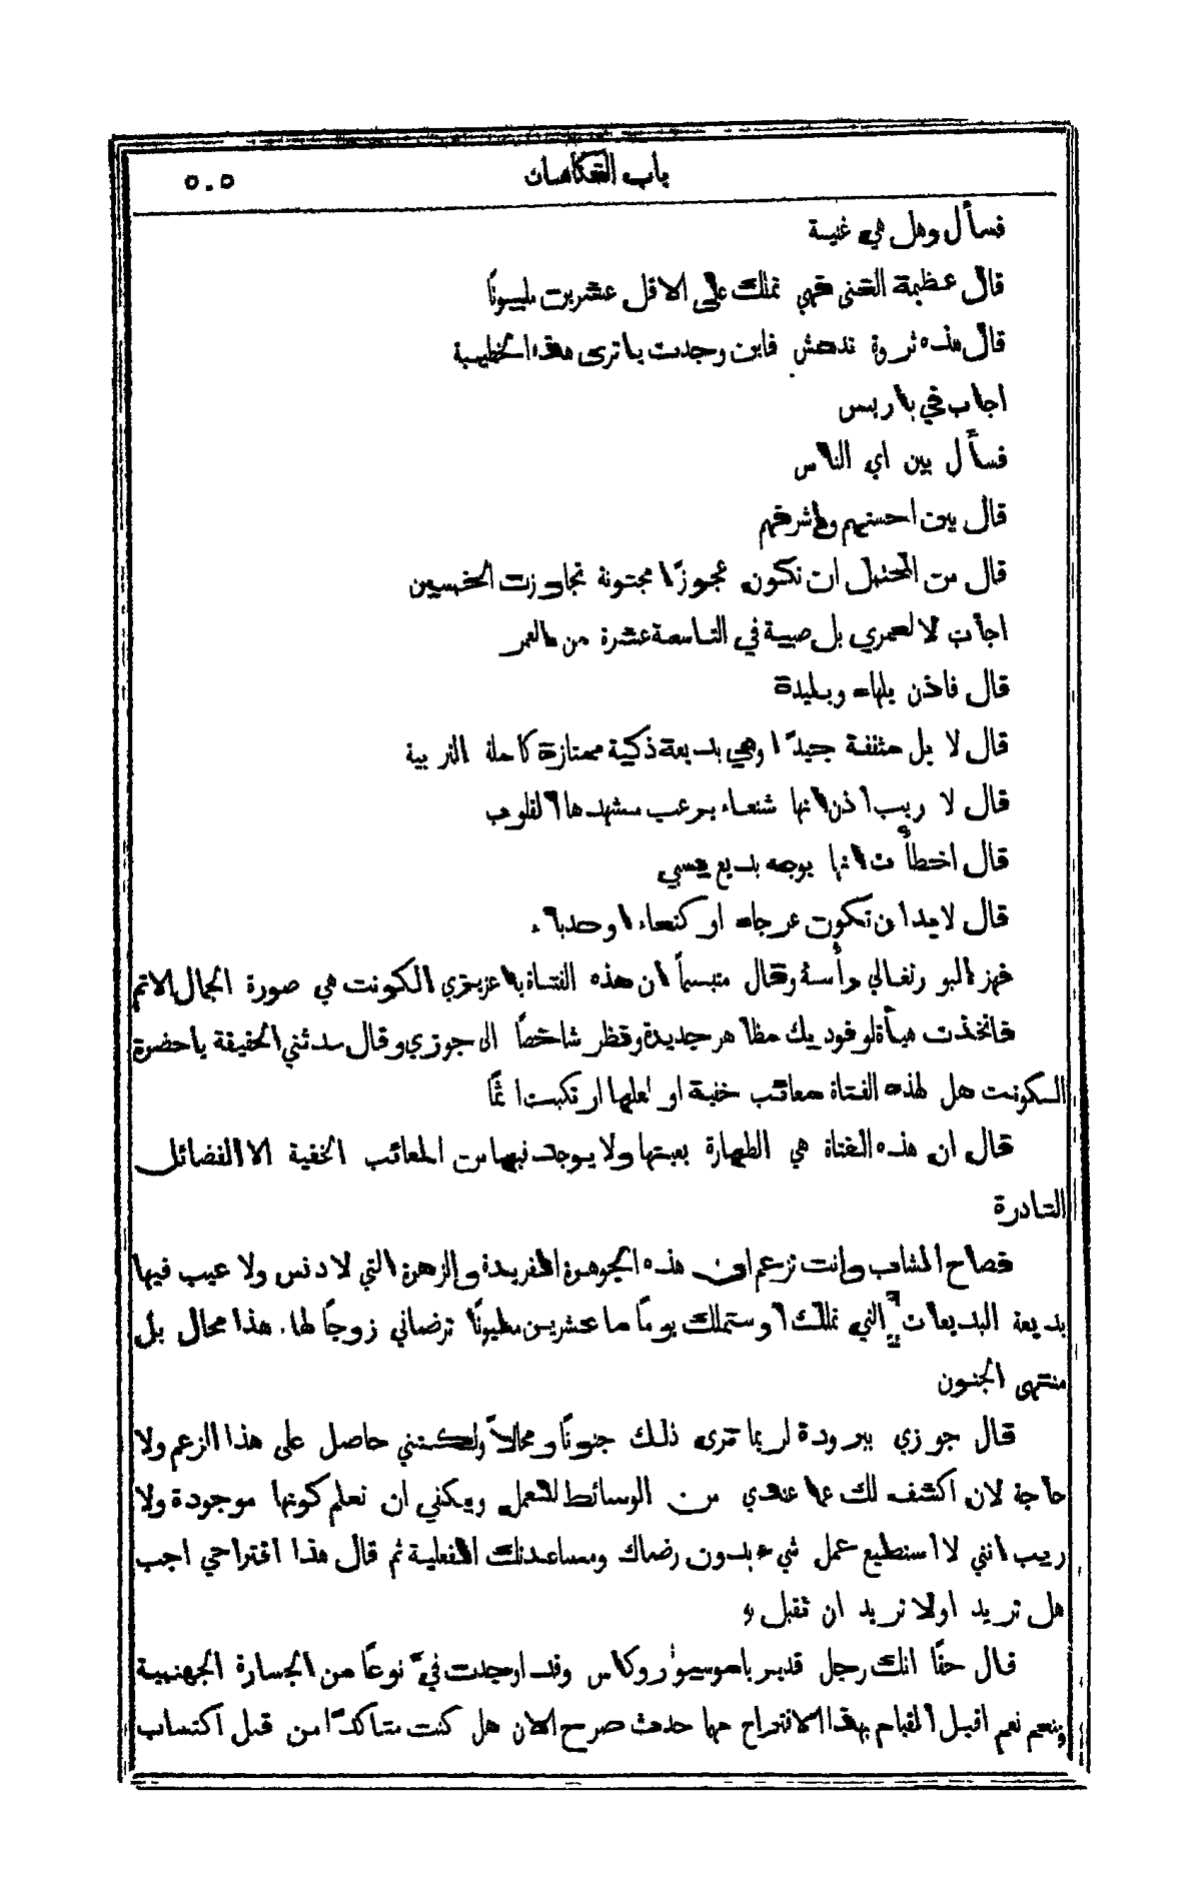 باب الفكاهات ٥٠٥
فسأل وهل هي غنية
قال عظيمة الغنى فهي تملك على الاقل عشرين مليونًا
قال هذه ثروة تدهش فاين وجدت يا ترى هذه الخطيبة
اجاب في باريس
فسأل بين اي الناس
قال بين احسنهم واشرفهم
قال من المحتمل ان تكون عجوزًا مجنونة تجاوزت الخمسين
اجاب لا لعمري بل صبية في التاسعة عشرة من العمر
قال فاذن بلهاء وبليدة
قال لا بل مثقفة جيدًا وهي بديعة ذكية ممتازة كاملة التربية
قال لا ريب اذن انها شنعاء يرعب مشهدها القلوب
قال اخطأت انها بوجه بديع يسبي
قال لا بد ان تكون عرجاء او كنعاء او حدباء
فهز البورتغالي رأسه وقال متبسماً ان هذه الفتاة يا عزيزي الكونت هي صورة الجمال الاتم
فاتخذت هيأة لوفوديك مظاهر جديدة ونظر شاخصًا الى جوزي وقال حدثني الحقيقة يا حضرة
الكونت هل لهذه الفتاة معائب خفية او لعلها ارتكبت اثمًا
قال ان هذه الفتاة هي الطهارة بعينها ولا يوجد فيها من المعائب الخفية الا الفضائل
النادرة
فصاح الشاب وانت تزعم ان هذه الجوهرة الفريدة والزهرة التي لا دنس ولا عيب فيها
بديعة البديعات التي تملك او ستملك يومًا ما عشرين مليونًا ترضاني زوجًا لها. هذا محال بل
منتهى الجنون
قال جوزي ببرودة لربما ترى ذلك جنونًا ومحالاً ولكنني حاصل على هذا الزعم ولا
حاجة لان اكشف لك عما عندي من الوسائط للعمل ويكفي ان تعلم كونها موجودة ولا
ريب انني لا استطيع عمل شيء بدون رضاك ومساعدتك الفعلية ثم قال هذا اقتراحي اجب
هل تريد او لا تريد ان تقبل
قال حقًا انك رجل قدير يا موسيو روكاس وقد اوجدت فيّ نوعًا من الجسارة الجهنمية
ونعم نعم اقبل القيام بهذا الاقتراح مهما حدث صرح الان هل كنت متأكدًا من قبل اكتساب